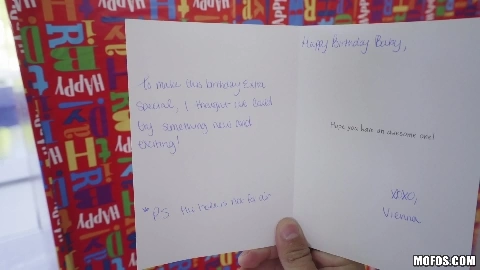 HAPPY
HAPPY
HAPPY
HAPPY
To make this birthday Extra
Special, I thought I'd
try something new and
Exciting!
*P.S. The
Happy Birthday Baby,
Hope you have an awesome one!
XOXO,
Vienna
MOFOS.COM